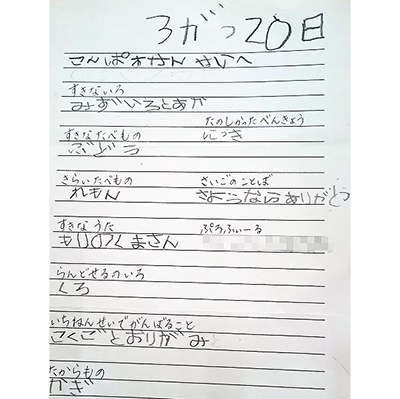 3がつ20日
すきないろ
みずいろとあか
すきなたべもの
ぶどう
たのしかったべんきょう
にっき
きらいたべもの
れもん
さいごのことば
さようならありがとう
すきなうた
もりのくまさん
ぷろふぃーる
らんどせるのいろ
くろ
いちねんせいでがんばること
こくごとおりがみ
たからもの
かぎ